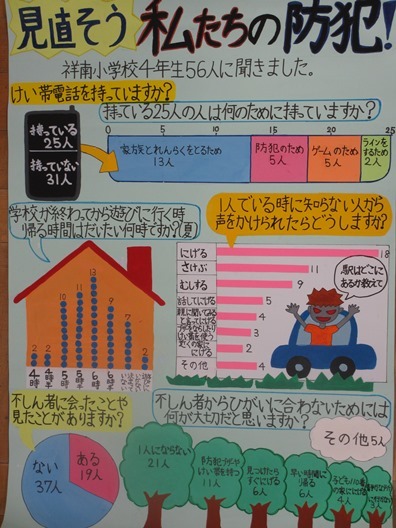 見直そう 私たちの防犯!
祥南小学校4年生56人に聞きました。
けい帯電話を持っていますか?
持っている25人の人は何のために持っていますか?
持っている
25人
持っていない
31人
0 5 10 15 20 25
家族とれんらくをとるため
13人
防犯のため
5人
ゲームのため
5人
ラインを
するため
2人
学校が終わってから遊びに行く時
帰る時間はだいたい何時ですか?(夏)
2 2 10 11 13 9 7 2
4時
4時半
5時
5時半
6時
6時半
1人でいる時に知らない人から
声をかけられたらどうしますか?
にげる 18
さけぶ 11
むしする 9
会話してにげる 5
4
3
2
その他 4
駅はどこに
あるか教えて
不しん者に会ったことや
見たことがありますか?
ない
37人
ある
19人
不しん者からひがいに合わないためには
何が大切だと思いますか?
その他5人
1人にならない
21人
防犯ブザーや
けい帯を持つ
11人
見つけたら
すぐにげる
6人
早い時間に
帰る
6人
子ども110番
の家ににげる
4人
3人